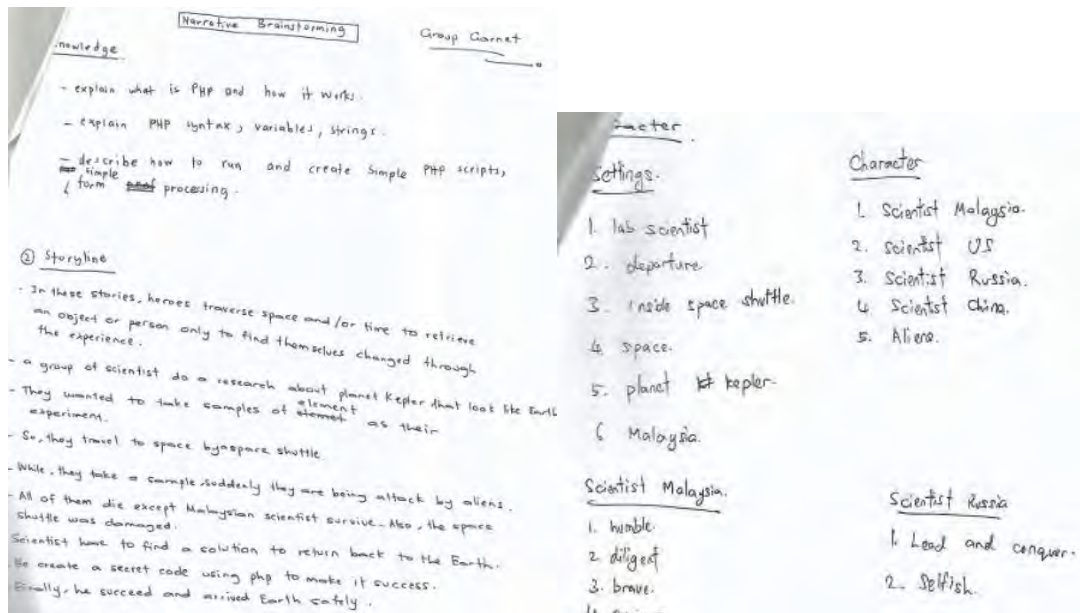 Narrative Brainstorming
Group Garnet
nowledge
- explain what is PHP and how it works.
- explain PHP syntax, variables, strings.
- describe how to run and create simple PHP scripts,
simple
form processing.
② Storyline
- In these stories, heroes traverse space and/or time to retrieve
an object or person only to find themselves changed through
the experience.
- a group of scientist do a research about planet Kepler that look like Earth
- They wanted to take samples of element as their
experiment.
- So, they travel to space by a space shuttle
- While, they take a sample, suddenly they are being attack by aliens.
- All of them die except Malaysian scientist survive. Also, the space
shuttle was damaged.
Scientist have to find a solution to return back to the Earth.
He create a secret code using php to make it success.
Finally, he succeed and arrived Earth safely.
acter
Settings.
1. lab scientist
2. departure
3. inside space shuttle.
4. space.
5. planet kepler.
6 Malaysia.
Character
1. Scientist Malaysia.
2. Scientist US
3. Scientist Russia.
4. Scientist China.
5. Aliens.
Scientist Malaysia.
1. humble.
2. diligent
3. brave.
Scientist Russia
1. Lead and conquer.
2. Selfish.